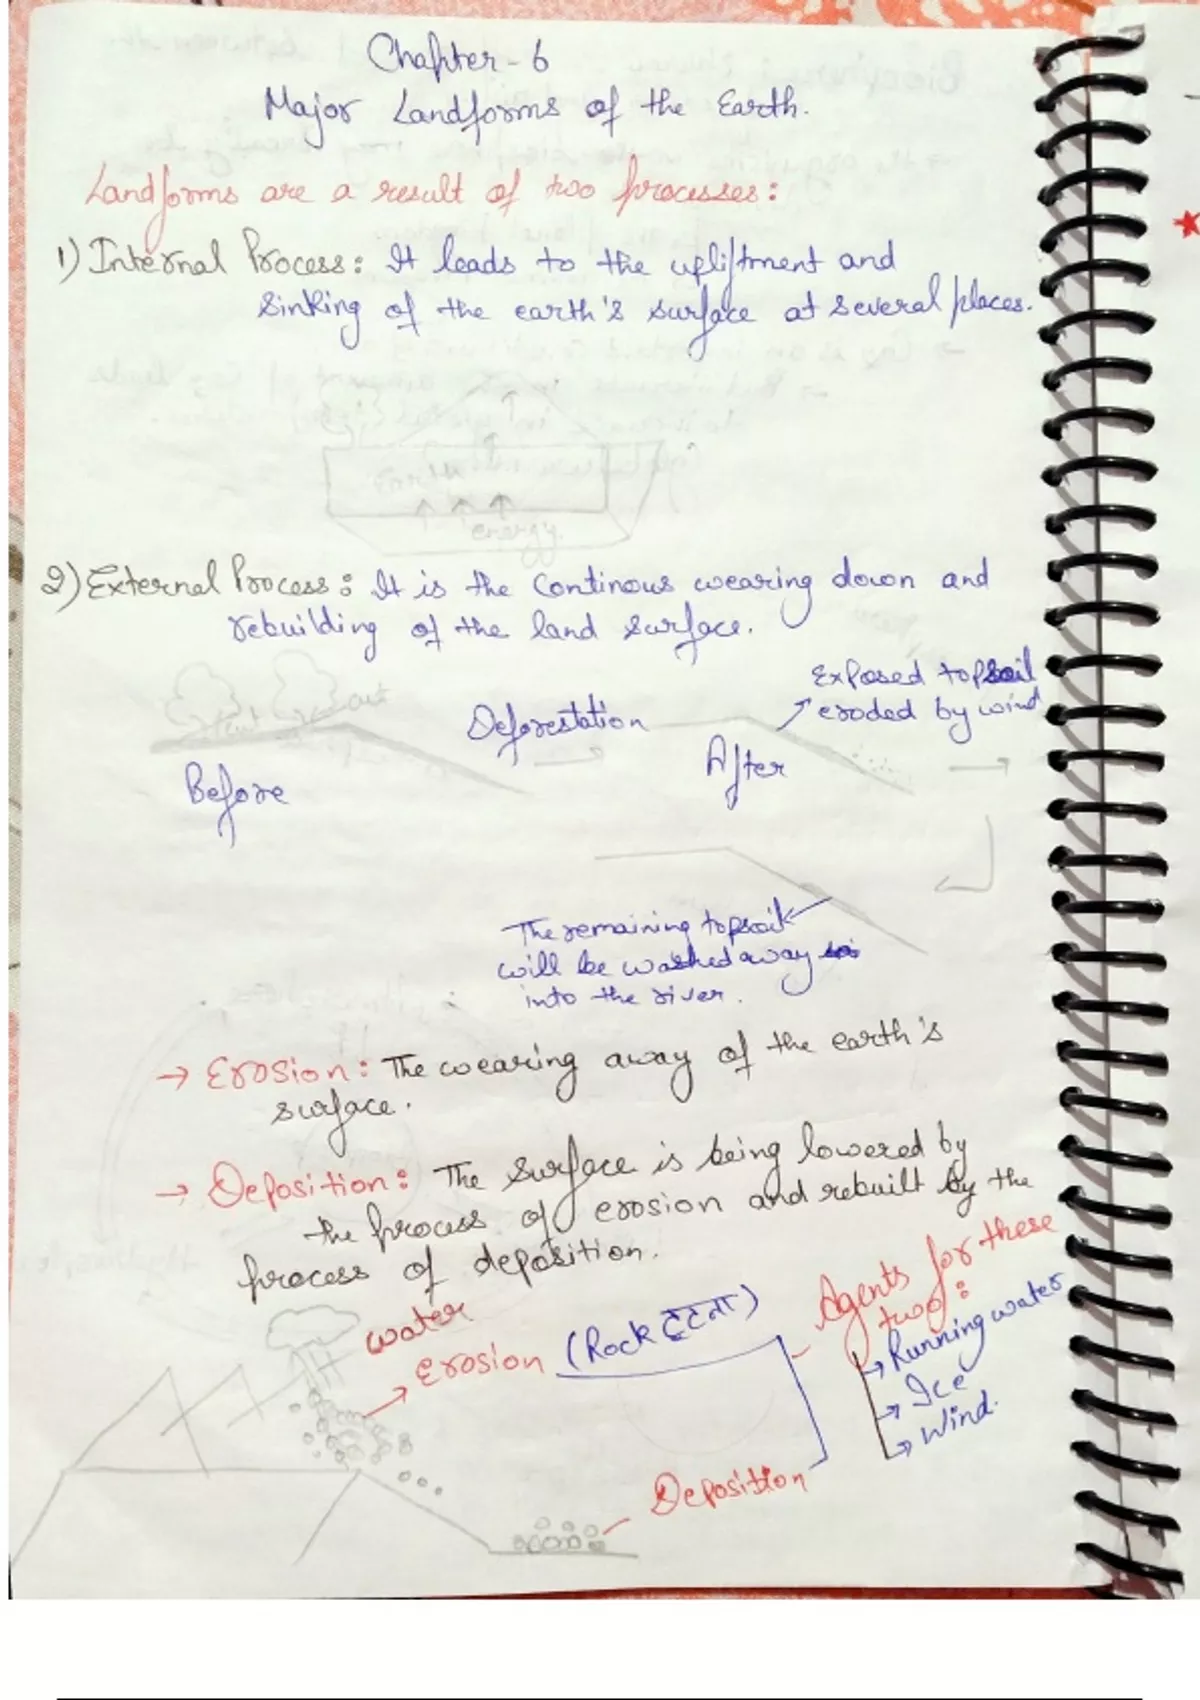 Chapter - 6
Major Landforms of the Earth.
Landforms are a result of two processes:
1) Internal Process: It leads to the upliftment and
sinking of the earth's surface at several places.
energy.
2) External Process: It is the continous wearing down and
rebuilding of the land surface.
Exposed topsoil
eroded by wind
Deforestation
After
Before
The remaining topsoil
will be washed away
into the river.
→ Erosion: The wearing away of the earth's
surface.
→ Deposition: The surface is being lowered by
the process of erosion and rebuilt by the
process of deposition.
Agents for these
two:
→ Running water
→ Ice
→ Wind.
water
Erosion (Rock टूटना)
Deposition